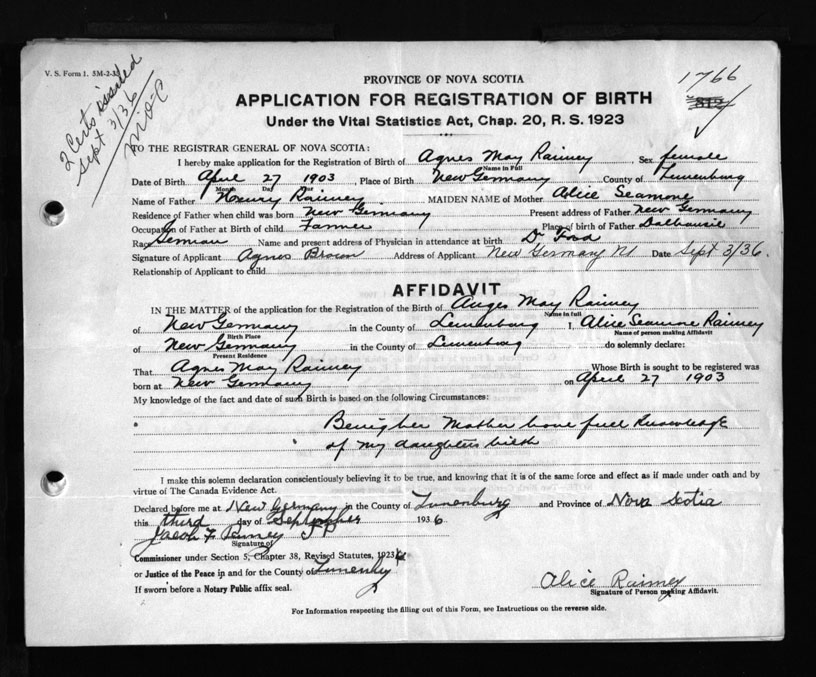 V. S. Form 1. 5M-2-35
2 Certs issued
Sept 3/36
PROVINCE OF NOVA SCOTIA
1766
APPLICATION FOR REGISTRATION OF BIRTH
812
Under the Vital Statistics Act, Chap. 20, R. S. 1923
TO THE REGISTRAR GENERAL OF NOVA SCOTIA:
I hereby make application for the Registration of Birth of Agnes May Rainey Sex female
Name in Full
Date of Birth April 27 1903, Place of Birth New Germany County of Lunenburg
Month Day
Name of Father Henry Rainey MAIDEN NAME of Mother Alice Seamone
Residence of Father when child was born New Germany Present address of Father New Germany
Occupation of Father at Birth of child Farmer Place of birth of Father Dalhousie
Race German Name and present address of Physician in attendance at birth Dr Ford
Signature of Applicant Agnes Brown Address of Applicant New Germany NS Date Sept 3/36.
Relationship of Applicant to child
AFFIDAVIT
IN THE MATTER of the application for the Registration of the Birth of Anges May Rainey
Name in full
of New Germany in the County of Lunenburg I, Alice Seamone Rainey
Birth Place Name of person making Affidavit
of New Germany in the County of Lunenburg do solemnly declare:
Present Residence
That Agnes May Rainey Whose Birth is sought to be registered was
born at New Germany on April 27 1903
My knowledge of the fact and date of such Birth is based on the following Circumstances:
Being her Mother have full Knowledge
of my daughters birth
I make this solemn declaration conscientiously believing it to be true, and knowing that it is of the same force and effect as if made under oath and by
virtue of The Canada Evidence Act.
Declared before me at New Germany in the County of Lunenburg and Province of Nova Scotia
this third day of September 1936
Jacob F JP
Signature of
Commissioner under Section 5, Chapter 38, Revised Statutes, 1923
or Justice of the Peace in and for the County of Lunenburg
If sworn before a Notary Public affix seal.
Alice Rainey
Signature of Person making Affidavit.
For Information respecting the filling out of this Form, see Instructions on the reverse side.